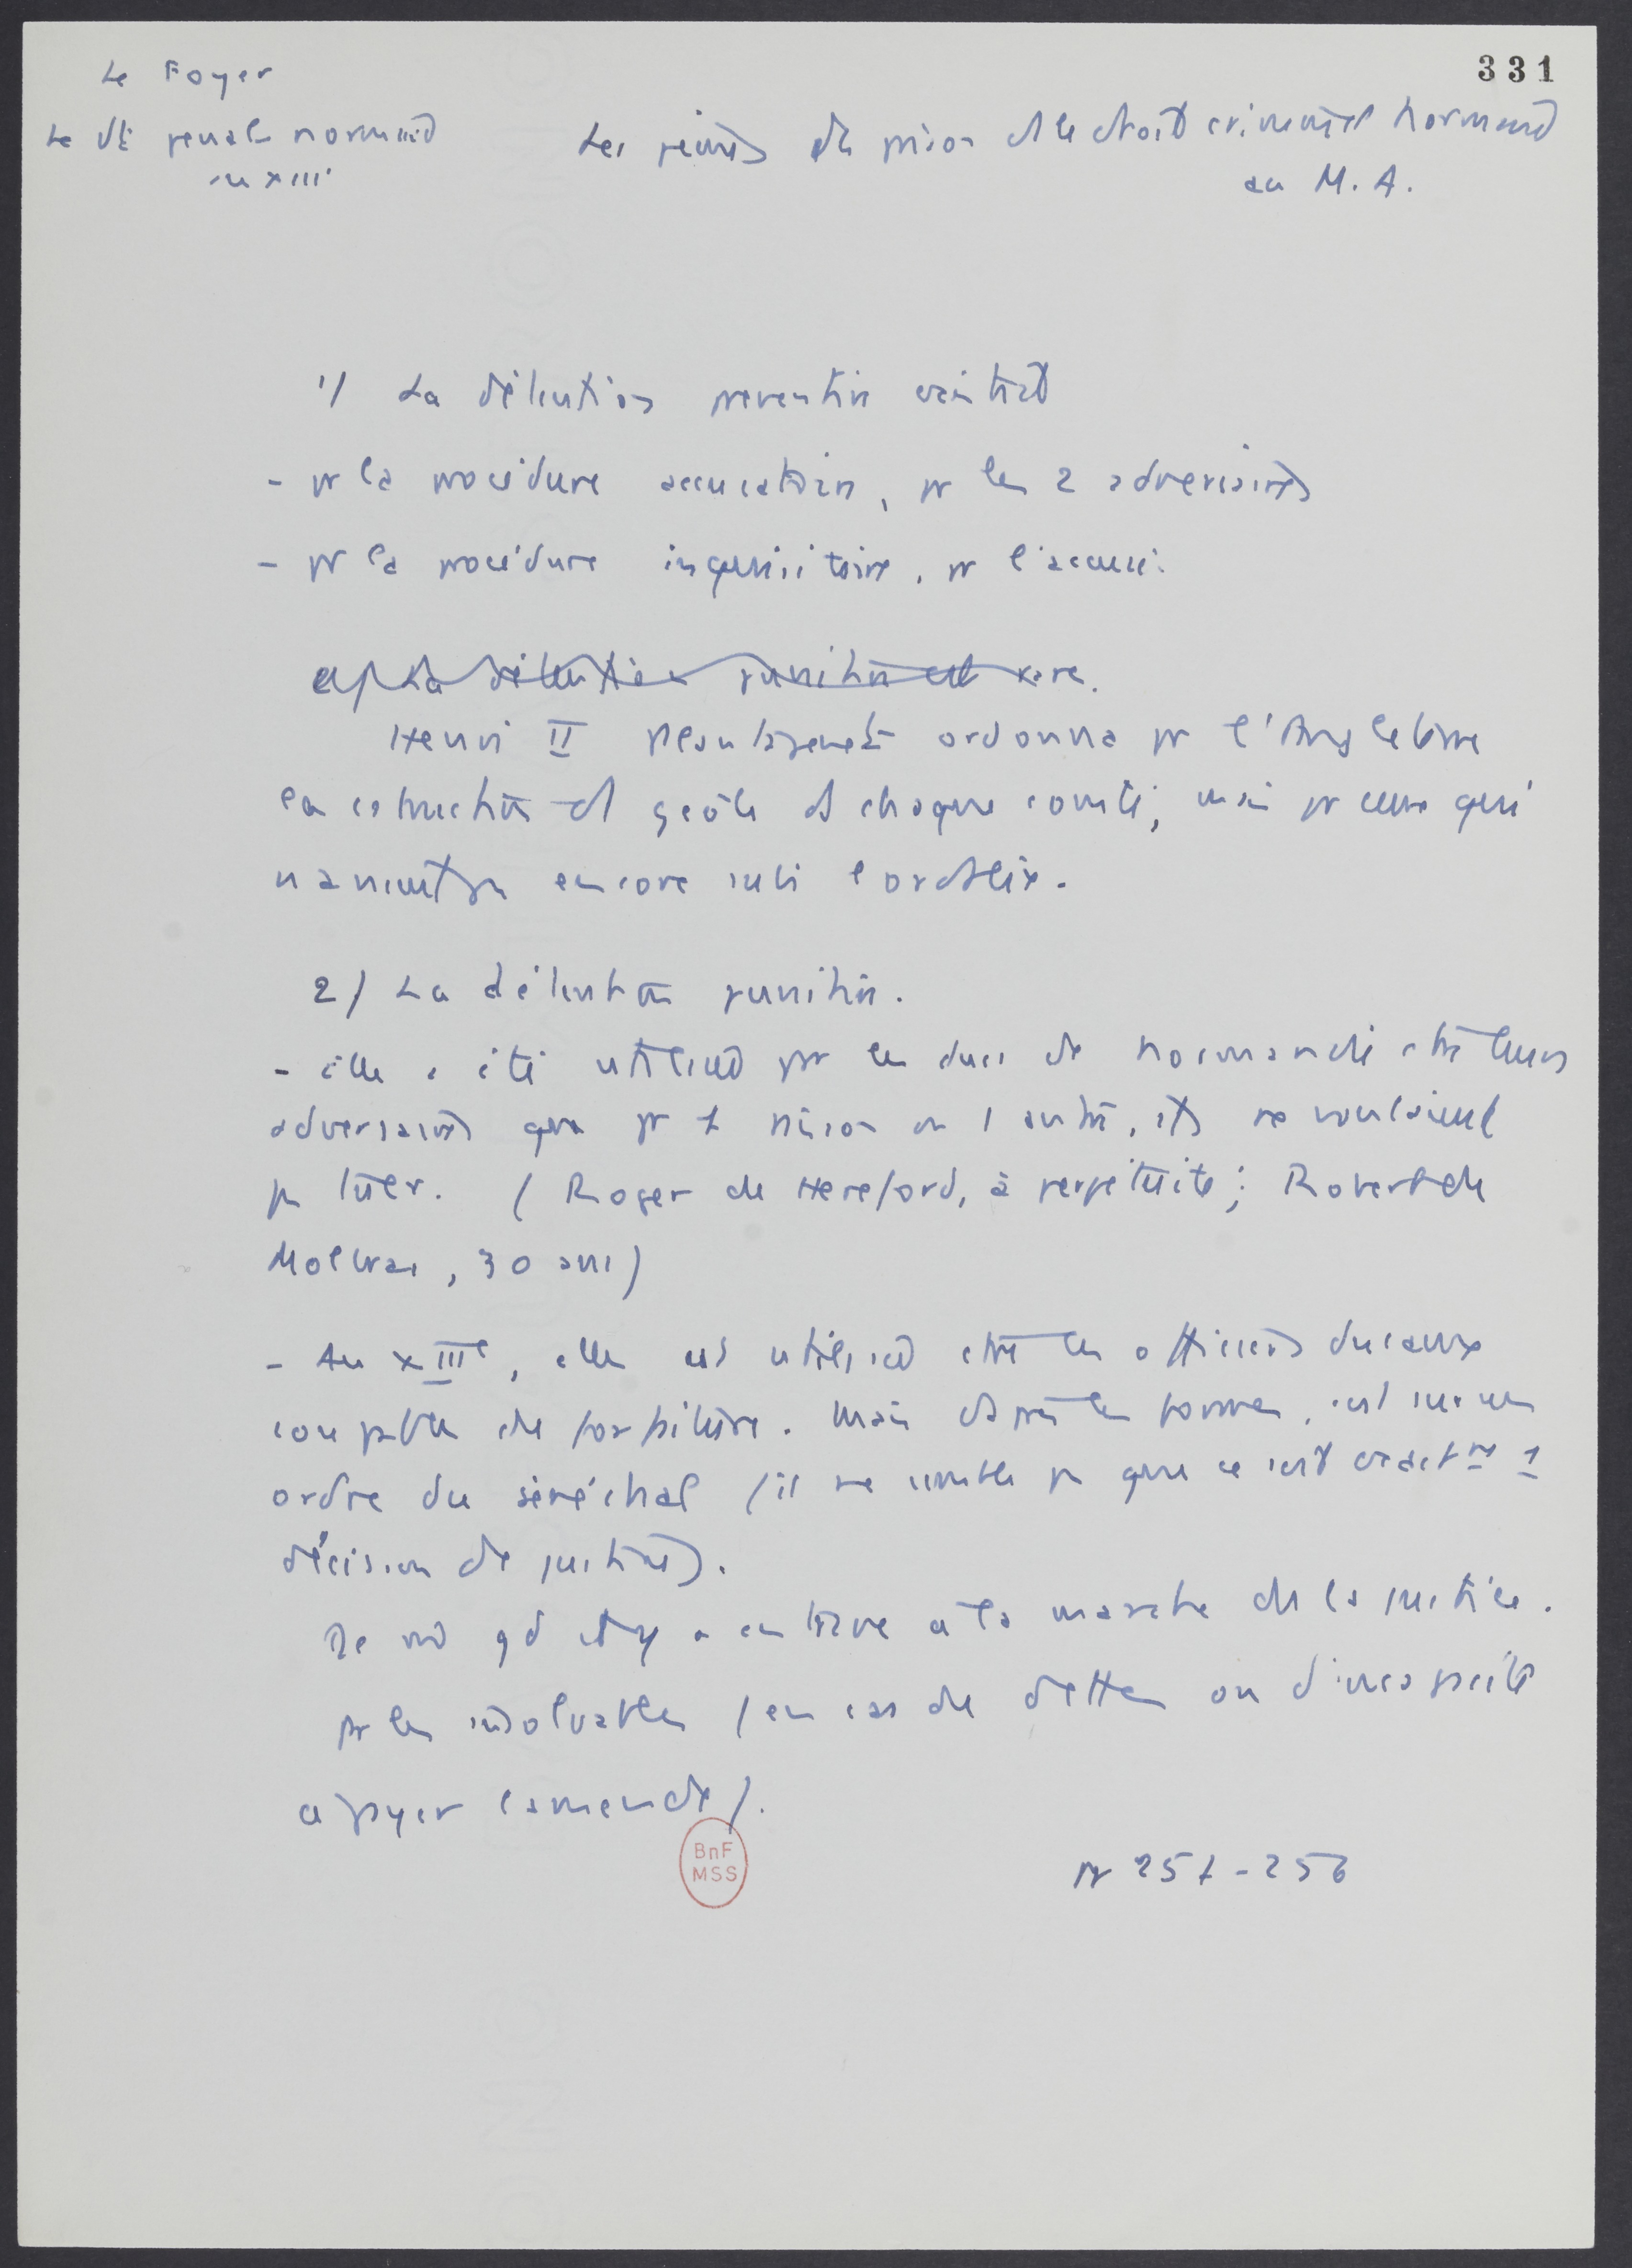 331
Le Foyer
Le dt penal normand
au XIII
Les peines de prison ds le droit criminel normand
au M. A.
1/ La détention preventive existait
- pr la procédure accusatoire, pr les 2 adversaires
- pr la procédure inquisitoire, pr l'accusé.
2/ La détention punitive est rare.
Henri II Plantagenet ordonna pr l'Angleterre
la cstruction de geôle ds chaque comté; mais pr ceux qui
n'avaient pas encore subi l'ordalie.
2/ La détention punitive.
- elle a été utilisée par les ducs de Normandie ctre leurs
adversaires que pr 1 raison ou 1 autre, ils ne voulaient
pas tuer. (Roger de Hereford, à perpétuité; Robert de
Molbrai, 30 ans)
- Au XIIIe, elle est utilisée ctre les officiers ducaux
coupables de forfaiture. Mais ds ttes les formes, c'est sur un
ordre du sénéchal (il ne semble pas que ce soit exactemt 1
décision de justice).
De mê qd il y a entrave à la marche de la justice.
Pr les insolvables (en cas de dettes ou d'incapacité
à payer l'amende).
BnF
MSS